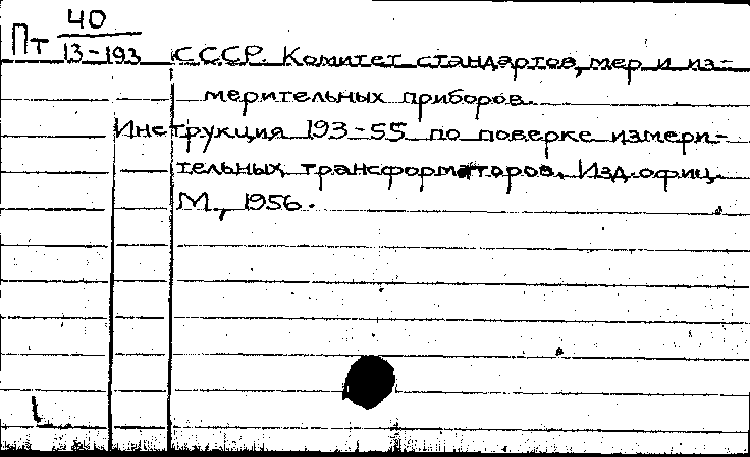 Пт 40
13-193 СССР. Комитет стандартов, мер и из-
мерительных приборов.
Инструкция 193-55 по поверке измери-
тельных трансформаторов. Изд. офиц.
М., 1956.